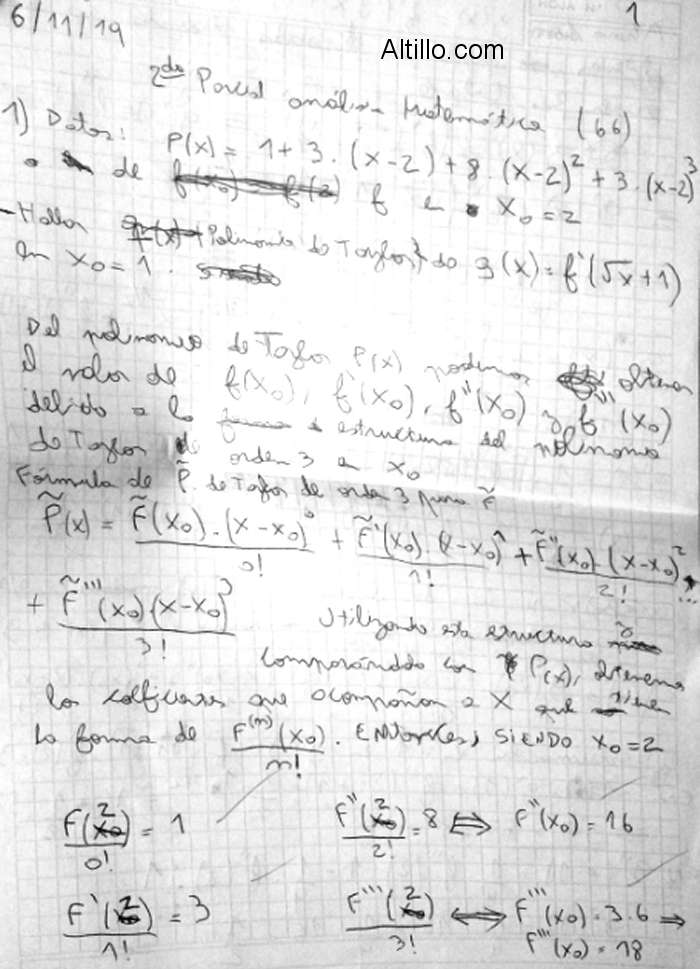 6/11/19
1
Altillo.com
2do Parcial análisis Matemático (66)
1) Datos: P(x) = 1 + 3 . (x-2) + 8 . (x-2)² + 3 . (x-2)³
de f en x₀ = 2
- Hallar Polinomio de Taylor de g(x) = f'(√x + 1)
en x₀ = 1.
Del polinomio de Taylor P(x) podemos obtener
el valor de f(x₀), f'(x₀), f''(x₀) y f'''(x₀)
debido a la estructura del polinomio
de Taylor de orden 3 en x₀
Fórmula de P̃. de Taylor de orden 3 para F̃
P̃(x) = F̃(x₀) . (x-x₀)⁰ / 0! + F̃'(x₀) (x-x₀)¹ / 1! + F̃''(x₀) . (x-x₀)² / 2! ...
+ F̃'''(x₀) (x-x₀)³ / 3! Utilizando esta estructura
con P(x),
los que acompañan a X que
la forma de F⁽ⁿ⁾(x₀) / n! . Entonces, SIENDO x₀=2
F(2) / 0! = 1 F''(2) / 2! = 8 ⟺ F''(x₀) = 16
F'(2) / 1! = 3 F'''(2) / 3! ⟺ F'''(x₀) = 3.6 ⇒
F'''(x₀) = 18